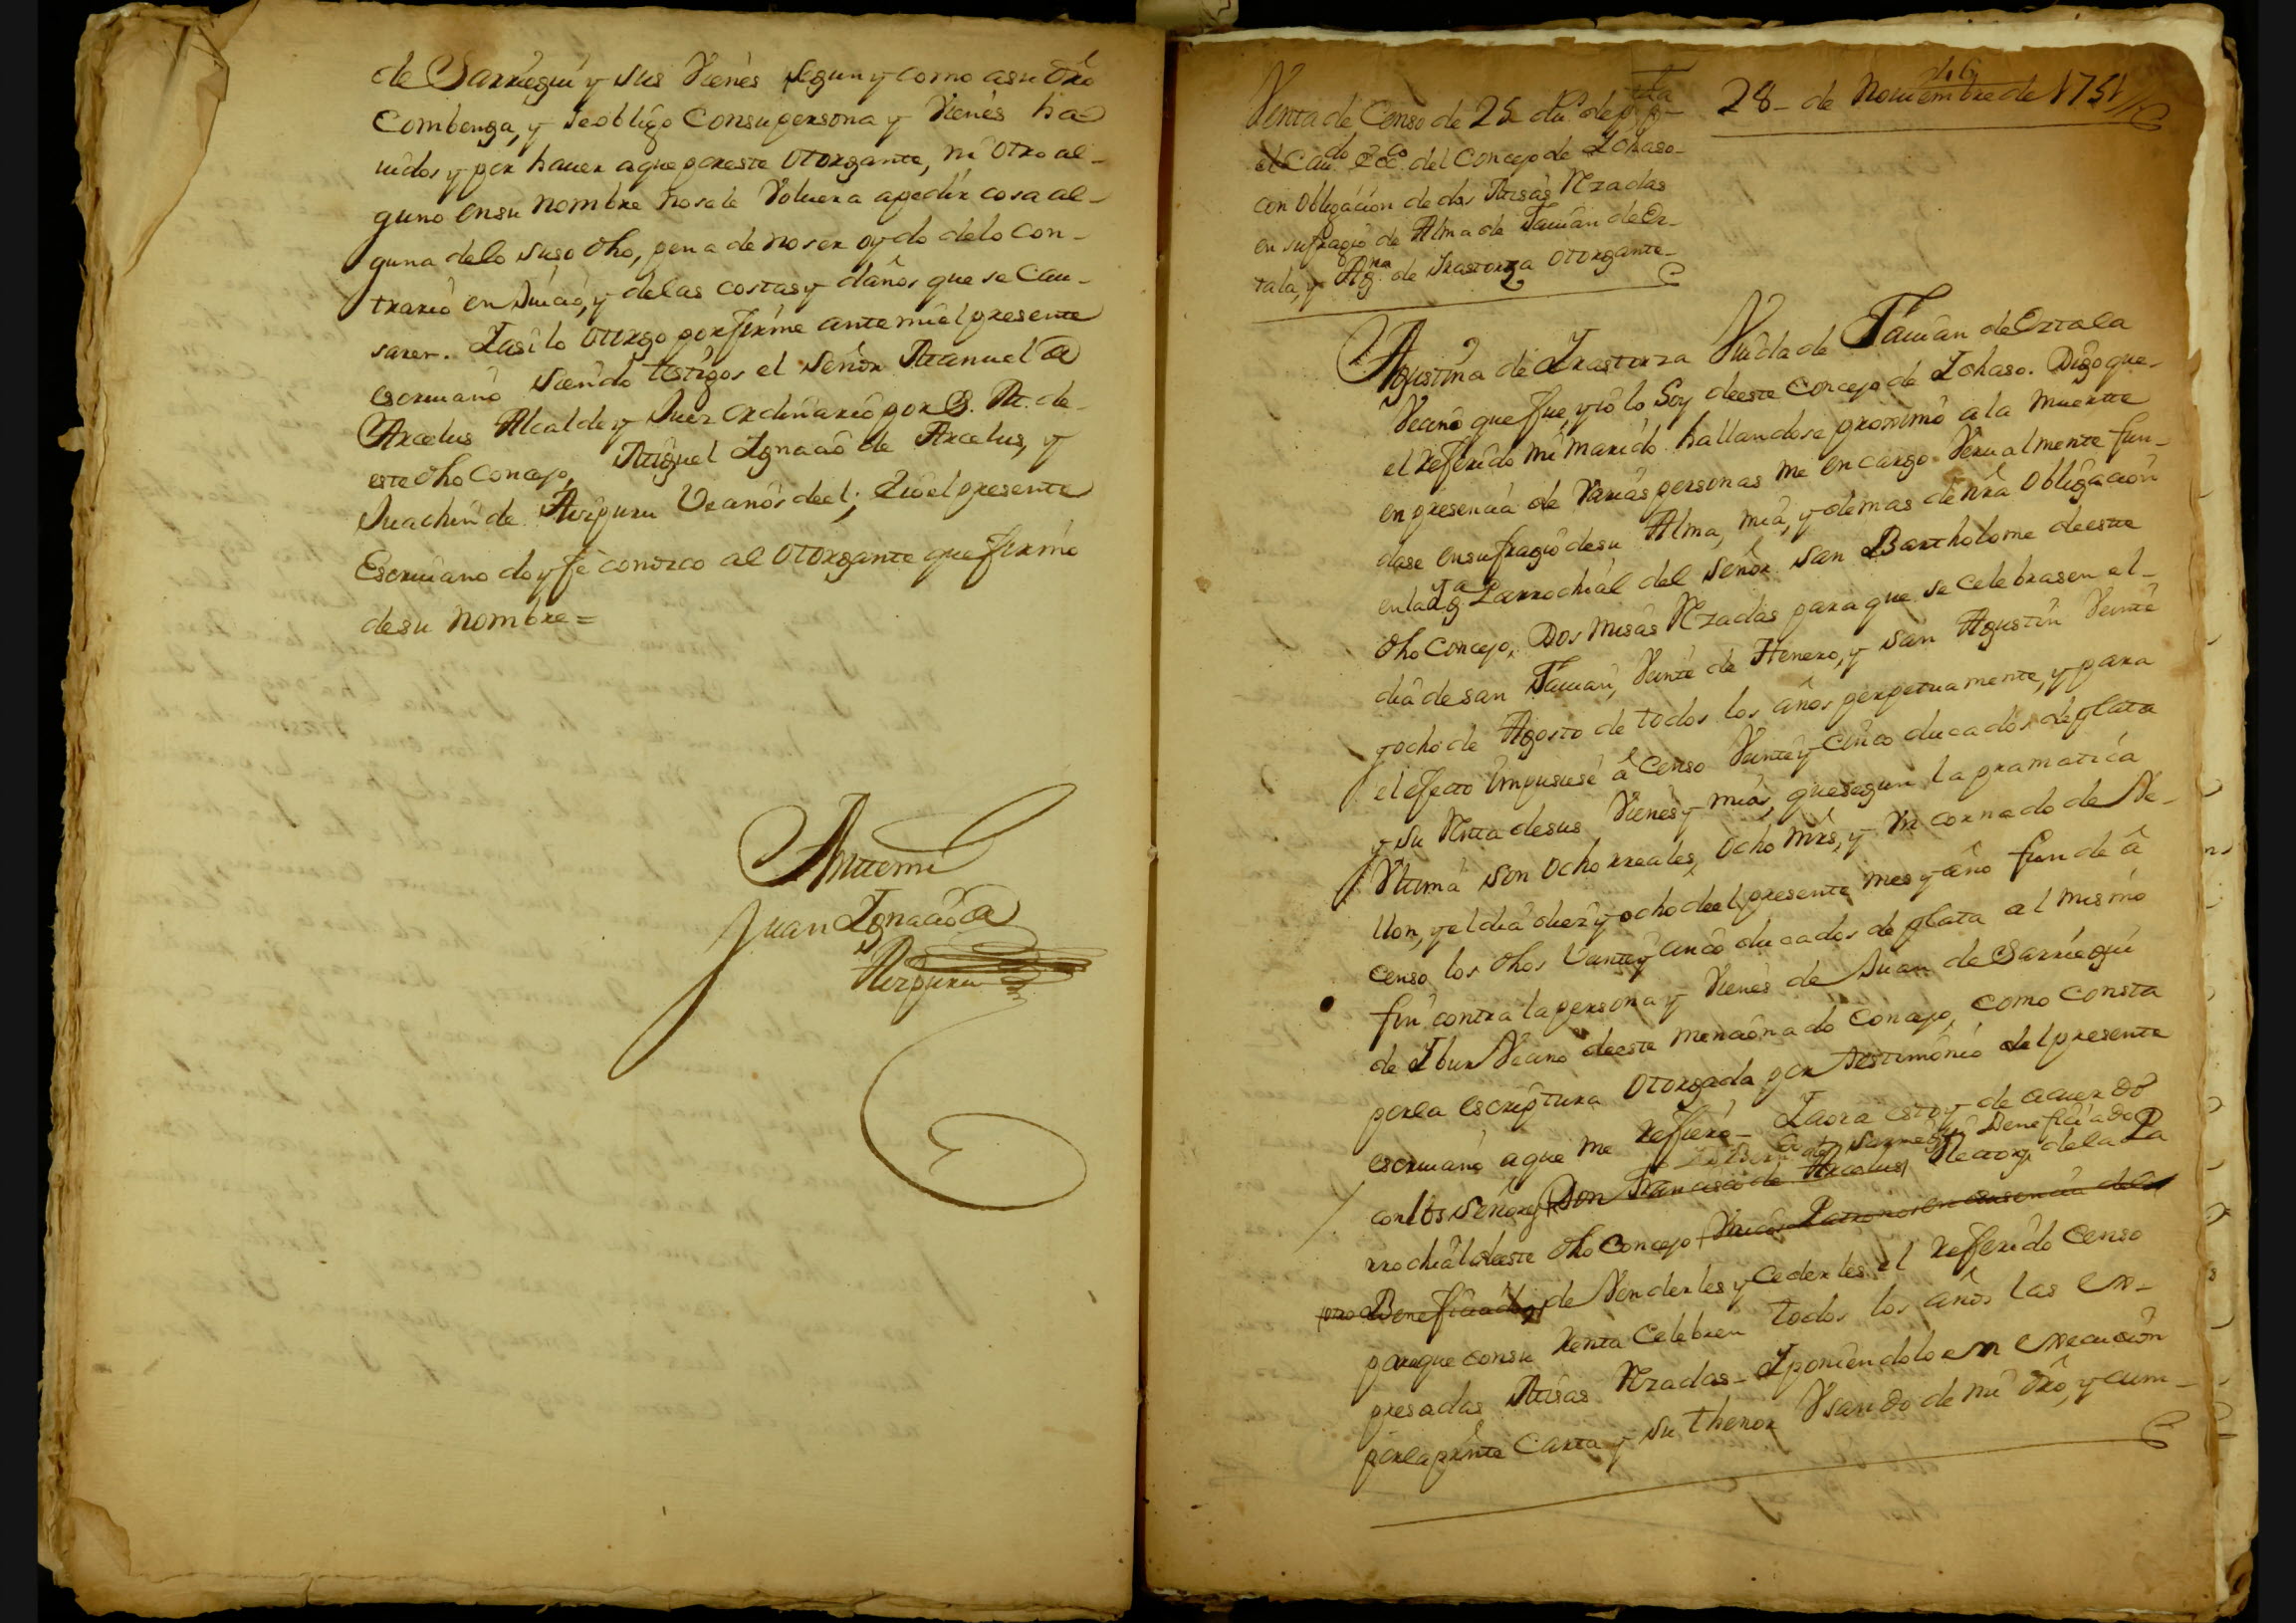 de Sarriegui y sus Vienes segun y como a su dro
Combenga, y se obligo Con su persona y Vienes ha
uidos y por hauer a que por este otorgante, ni otro al-
guno en su nombre no se le Voluera a pedir cosa al-
guna de lo suso dho, pena de no ser oydo de lo con-
trario en Juicio, y de las costas y daños que se Cau-
saren. I asi lo otorgo por firme ante mi el presente
escriuano siendo testigos el señor Manuel de
Arcelus Alcalde y Juez ordinario por S. M. de
este dho concejo, Miguel Ignacio de Arcelus, y
Juachin de Aizpuru Vecinos de el; E io el presente
Escriuano doy fe conozco al otorgante que firmo
de su nombre =
Ante mi
Juan Ignacio de
Aizpuru
Venta de Censo de 25 du.s de pta
el Cau.do ecc.co del Concejo de Ichaso-
con obligacion de dos Misas Rzadas
en sufragio de Alma de Fauian de Ez-
tala, y Ag.na de Irastorza otorgante-
28- de Nouiembre de 1751
Agustina de Irastorza Viuda de Fauian de Eztala
Vecino que fue, y io lo Soy de este Concejo de Ichaso. Digo que-
el referido mi marido hallandose proximo a la muerte
en presencia de Varias personas me encargo Verualmente fun-
dase en sufragio de su Alma, mia, y demas de nra obligacion
en la Yg.a Parrochial del señor san Bartholome de este
dho Concejo, Dos Misas Rzadas para que se celebrasen el-
dia de san Fauian, Veinte de Henero, y san Agustin Veinte
y ocho de Agosto de todos los años perpetuamente, y para
el efecto impusiese â Censo Veinte y cinco ducados de plata
y su Rtta de sus Vienes y mios, que segun la pramatica
Vltima son ocho rreales, ocho mrs, y Vn cornado de Ve-
llon, y el dia diez y ocho de el presente mes y año fundê â
censo los dhos Veinte y cinco ducados de plata al mismo
fin contra la persona y Vienes de Juan de Sarriegui
de Ibur Vecino de este mencionado Concejo, como consta
por la escriptura otorgada por testimonio del presente
escriuano a que me refiero- I aora estoy de acuerdo
de Sarriegui Beneficiado
con los señores Don Francisco de Arcelus Rector de la Pa
rrochial de este dho Concejo Vnicos Patronos en ausencia del
otro Beneficiado de Venderles y Cederles el referido Censo
para que con su Renta Celebren todos los años las ex-
presadas Misas Rzadas- I poniendolo en execucion
por la prnte Carta y su thenor Vsando de mi dro, y cum-